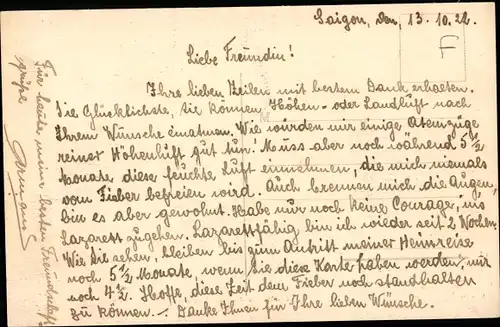 Saigon, den, 13.10.22.
Liebe Freundin!
Ihre lieben Zeilen mit bestem Dank erhalten.
Sie Glücklichste, sie können Höhen- oder Landluft nach
Ihrem Wunsche einatmen. Wie würden mir einige Atemzüge
reiner Höhenluft gut tun! Muss aber noch während 5 1/2
Monate diese feuchte Luft einnehmen, die mich niemals
vom Fieber befreien wird. Auch brennen mich die Augen,
bin es aber gewohnt. Habe nur noch keine Courage, ins
Lazarett zugehen. Lazarettfähig bin ich wieder seit 2 Wochen.
Wie Sie sehen, bleiben bis zum Antritt meiner Heimreise
noch 5 1/2 Monate, wenn Sie diese Karte haben werden, nur
noch 4 1/2. Hoffe, diese Zeit dem Fieber noch standhalten
zu können. — Danke Ihnen für Ihre lieben Wünsche.
Für heute meine besten Freundschafts
grüsse